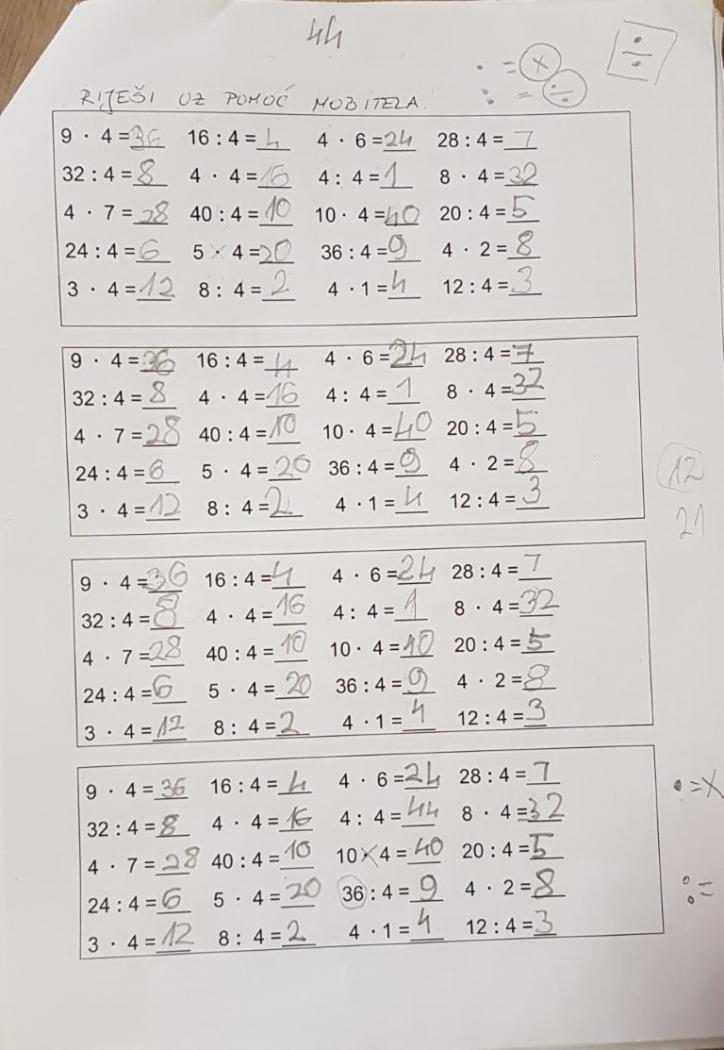 44
· = × : = ÷ ÷
RIJEŠI UZ POMOĆ MOBITELA.
9 · 4 = 36 16 : 4 = 4 4 · 6 = 24 28 : 4 = 7
32 : 4 = 8 4 · 4 = 16 4 : 4 = 1 8 · 4 = 32
4 · 7 = 28 40 : 4 = 10 10 · 4 = 40 20 : 4 = 5
24 : 4 = 6 5 × 4 = 20 36 : 4 = 9 4 · 2 = 8
3 · 4 = 12 8 : 4 = 2 4 · 1 = 4 12 : 4 = 3
9 · 4 = 36 16 : 4 = 4 4 · 6 = 24 28 : 4 = 7
32 : 4 = 8 4 · 4 = 16 4 : 4 = 1 8 · 4 = 32
4 · 7 = 28 40 : 4 = 10 10 · 4 = 40 20 : 4 = 5
24 : 4 = 6 5 · 4 = 20 36 : 4 = 9 4 · 2 = 8
3 · 4 = 12 8 : 4 = 2 4 · 1 = 4 12 : 4 = 3
12
21
9 · 4 = 36 16 : 4 = 4 4 · 6 = 24 28 : 4 = 7
32 : 4 = 8 4 · 4 = 16 4 : 4 = 1 8 · 4 = 32
4 · 7 = 28 40 : 4 = 10 10 · 4 = 10 20 : 4 = 5
24 : 4 = 6 5 · 4 = 20 36 : 4 = 9 4 · 2 = 8
3 · 4 = 12 8 : 4 = 2 4 · 1 = 4 12 : 4 = 3
9 · 4 = 36 16 : 4 = 4 4 · 6 = 24 28 : 4 = 7
32 : 4 = 8 4 · 4 = 16 4 : 4 = 44 8 · 4 = 32
4 · 7 = 28 40 : 4 = 10 10 × 4 = 40 20 : 4 = 5
24 : 4 = 6 5 · 4 = 20 36 : 4 = 9 4 · 2 = 8
3 · 4 = 12 8 : 4 = 2 4 · 1 = 4 12 : 4 = 3
· = ×
: =